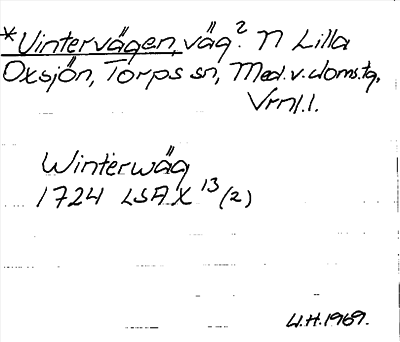 *Vintervägen, väg? N Lilla
Oxsjön, Torps sn, Med. v. doms.tg,
Vrnl. l.
Winterwäg
1724 LSA X 13/(2)
U.H. 1969.